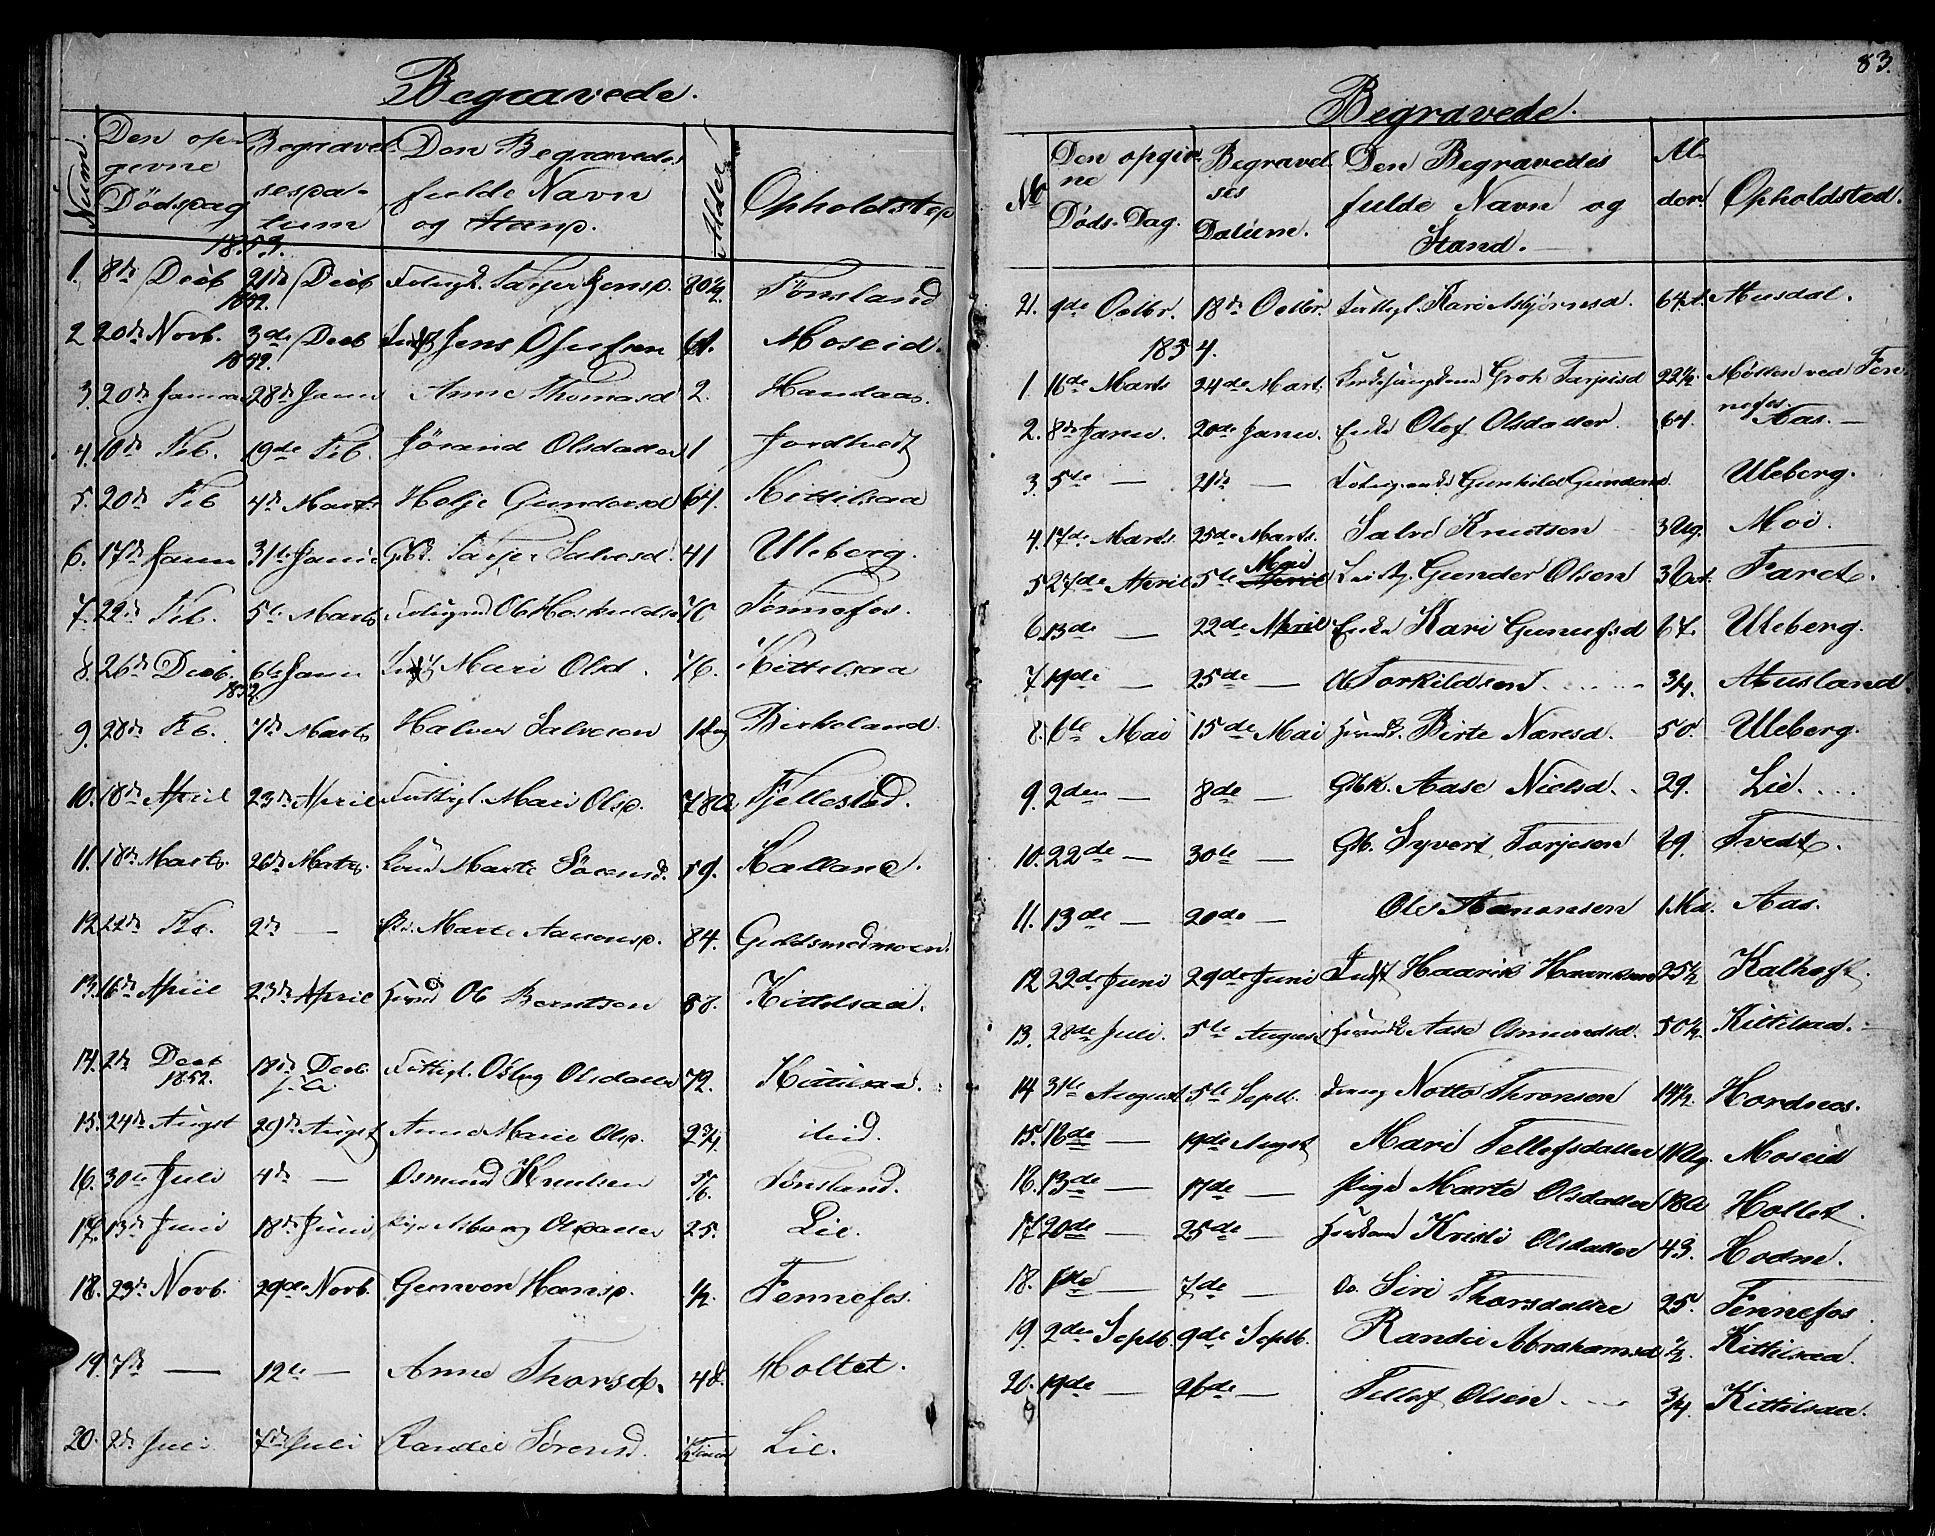 Begravede.
Num Den op-gevne Dödsdag Begravelsesdatum Den Begravedes fulde Navn og Stand. Alder Opholdsted
1853.
1. 8de Decb 21de Decb Taljer Jensd. 80½ Tønsland
1852.
2 20de Novb. 3de Decb Jens Osufsen Moseid.
1852.
3. 20de Januar 28de Janu Anne Thomasd 2. Haudaas.
4. 10de Feb. 19de Feb. Jørand Olsdatter 1 Jordtvedt
5. 20de Feb 4de Marts Holje Gundersd 64. Kittilsaa
6. 17de Janu 31te Janu Gbd. Taljer Salvesd. 41 Uleberg.
7. 22de Feb. 5te Marts Ole Hoskuldsen 70 Fennefos.
8. 26de Decb. 6te Janu Mari Olsd. 76. Kittelsaa
1852.
9. 28de Feb. 7de Marts Halvor Salvesen 1 Birkeland.
10. 18de April 23de April Fattigl. Mari Olsd. 78 Fjellestad.
11. 18de Marts. 26de Marts. Marte Sørensd. 59. Kalland.
12. Feb. 2de — Marte Aanensd. 84. Guldsmedmoen.
13. 16de April 23de April Ole Berntsen 88. Kittelsaa.
14. 2de Decb 1852. 18de Decb Fattigl. Olsdatter 72. Kittilsaa.
15. 24de Augst 29de Augst Anne Marie Olsd. 2¾ ibid.
16. 30te Juli 4de — Osmund Knudsen 5/6. Tønsland.
17. 13de Juni 18de Juni pige Olsdatter 25. Lie.
18. 23de Novb. 29de Novb. Gunvor Hansd. ½ Fennefos.
19. 7de — 12te — Anne Thorsd. 48. Holtet.
20. 2de Juli 7de Juli Randei Sørensd. ½ Time Lie.
83.
Begravede.
No Den opgivne Døds-Dag. Begravelses Datum. Den Begravedes fulde Navn og Stand. Alder. Opholdsted.
21. 9de Octbr. 18de Octbr. Fattigl. Kari Asbjørnsd. 64 Musdal.
1854.
1. 16de Marts 24de Mart. Groh Tarjeisd 22½. Moseen ved Fennefos.
2. 8de Janu. 20de Janu. Enke Oleg Olsdatter. 64. Aas. —
3. 5te — 21de — Gunhild Gundersd. Uleberg.
4. 17de Marts. 25de Marts. Salve Knudsen 3 Ug. Moi.
5 27de April 5te Mai Gunder Olsen 3 Faret.
6. 13de — 22de April Enke Kari Gunulfsd 67. Uleberg.
7. 19de — 25de — Ole Torkildsen 3/4. Ausland.
8. 6te Mai 15de Mai Birte Næresd. 50. Uleberg.
9. 2den — 8de — Gbk. Aase Nielsd. 29. Lie.
10. 22de — 30te — Gb. Syvert Torjesen 69. Tvedt.
11. 13de — 20de — Ole Aanonsen 1 Md. Aas.
12 22de Juni 29de Juni Haavik Haaviksen 25½ Kalhoft.
13. 28de Juli. 5te August Aase Osmundsd. 50½. Kittilsaa.
14 31te August 5te Septb. dreng Notto Thronsen 14½. Hordnes.
15. 12de — 19de Augst Mari Tellefsdatter 11 Ug. Moseid
16. 13de — 17de — Pige Marte Olsdatter 18 Holtet.
17 20de — 25de — Kristi Olsdatter 43. Hodne.
18. 1ste — 7de — Do. Siri Thorsdatter 25. Fennefos
19. 2den Septb. 9de Septb. Randei Abrahamsd ½. Kittilsaa.
20. 19de — 26de — Tellef Olsen 3/4. Kittelsaa.